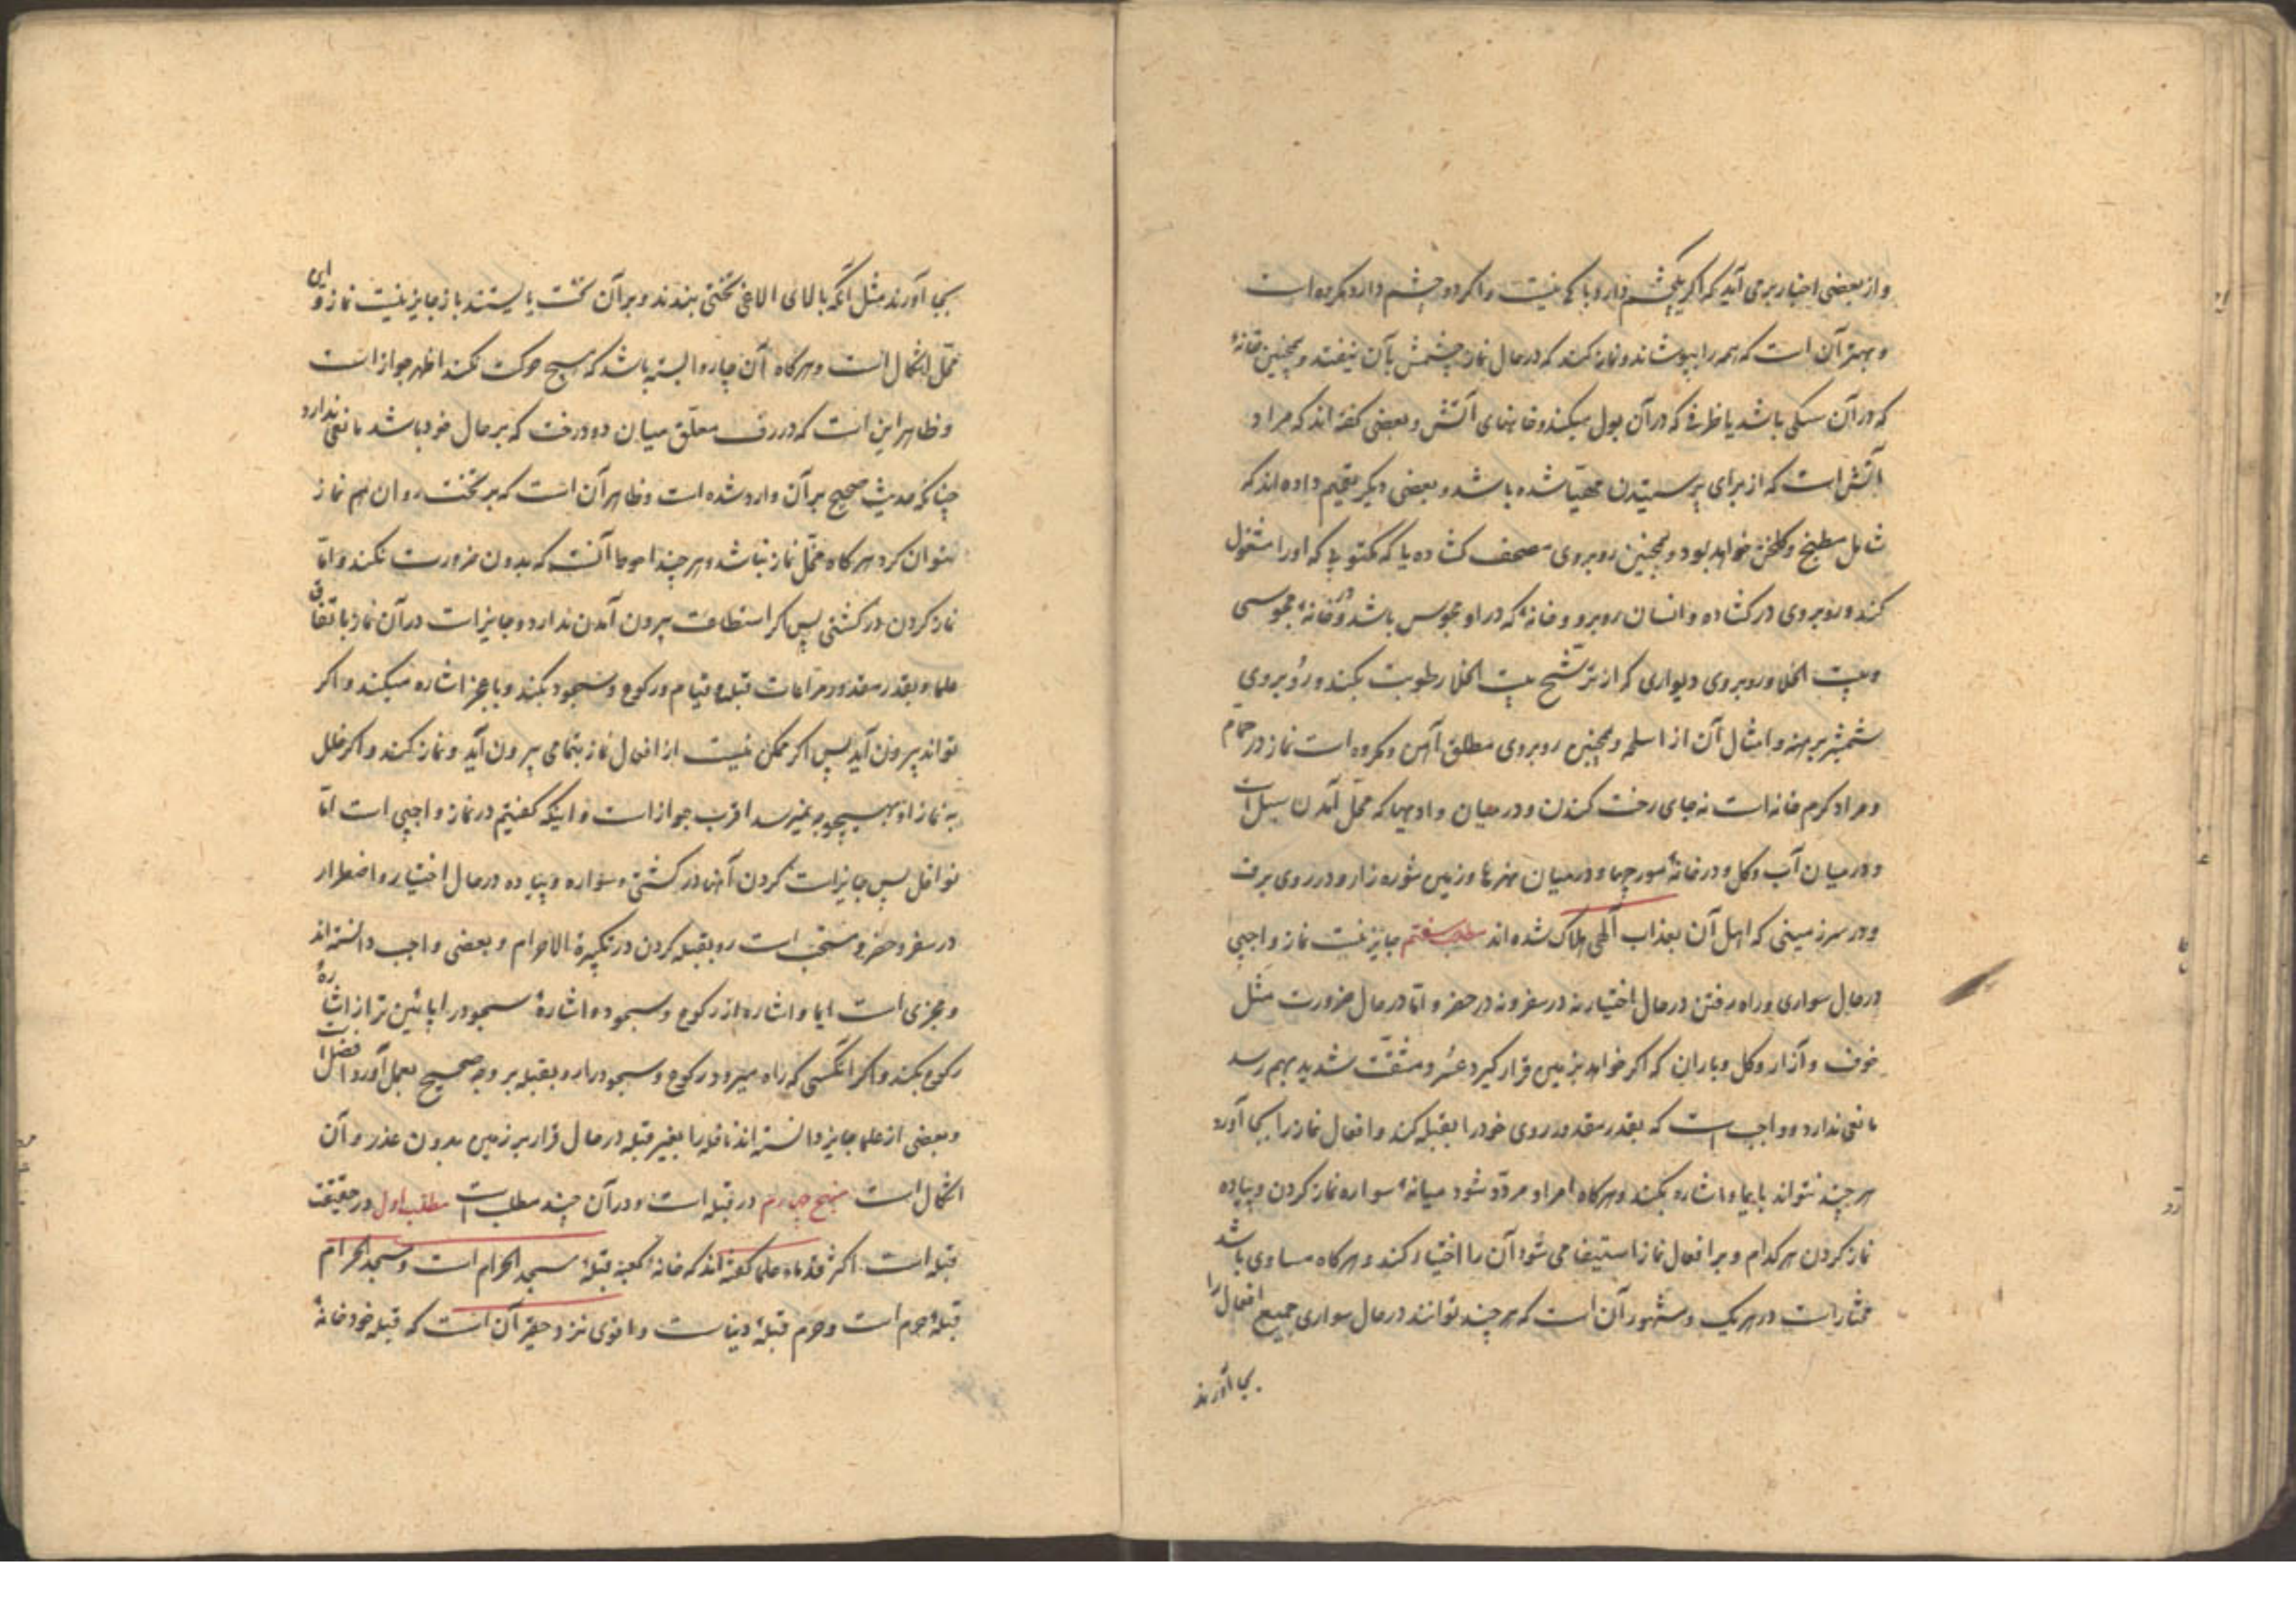 و از بعضی اخبار بر می آید که اگر یکچشم دارد باکی نیست و اگر دو چشم دارد مکروه است
و بهتر آن است که همه را بپوشاند و نماز کند که در حال نماز چشمش بآن نیفتد و همچنین خانهٔ
که در آن سکی باشد یا ظرفی که در آن بول میکنند و خانهای آتش و بعضی کفته اند که مراد
آتش است که از برای پرستیدن مهیّا شده باشد و بعضی دیکر تعمیم داده اند که
شامل مطبخ و کلخن خواهد بود و همچنین روبروی مصحف کشاده یا که مکتوبی که او را مشغول
کند و روبروی در کشاده و انسان روبرو و خانهٔ که در او مجوس باشد و در خانهٔ مجوسی
و بیت الخلا و روبروی دیواری که از ترشّح بیت الخلا رطوبت بکند و روبروی
شمشیر برهنه و امثال آن از اسلحه و همچنین روبروی مطلق آهن و مکروه است نماز در حمّام
و مراد کرم خانه است نه جای رخت کندن و در میان وادیها که محلّ آمدن سیل است
و در میان آب و کل و در خانهٔ مورچها و در میان نهرها و زمین شوره زار و در روی برف
و در سرزمینی که اهل آن بعذاب آلهی هلاک شده اند مطلب هفتم جایز نیست نماز واجبی
در حال سواری و راه رفتن در حال اختیار نه در سفر و نه در حضر و امّا در حال ضرورت مثل
خوف و آزار و کل و باران که اکر خواهد بزمین قرار کیرد عسر و مشقّت شدید بهم رسد
مانعی ندارد و واجب است که بقدر مقدور روی خود را بقبله کند و افعال نماز را بجا آورد
هر چند نتواند بایما و اشاره بکند و هرکاه امر او مردّد شود میانهٔ سواره نماز کردن و پیاده
نماز کردن هر کدام و بر افعال نماز استیفا می شود آن را اختیار کند و هرکاه مساوی باشد
مختار است در هر یک و مشهور آن است که هر چند توانند در حال سواری جمیع افعال را
بجا آورند
بجا آورند مثل آنکه بالای الاغی تختی ببندند و بر آن تخت بایستند باز جایز نیست نماز و این
محّل اشکال است و هرکاه آن چاروا بسته باشد که هیچ حرکت نکند اظهر جواز است
و ظاهر این است که در رف معلّق میان دو درخت که بر حال خود باشد مانعی ندارد
چنانکه حدیث صحیح بر آن وارد شده است و ظاهر آن است که بر تخت روان هم نماز
بتوان کرد هرکاه مخلّ نماز نباشد و هر چند احوط آنست که بدون ضرورت نکند و امّا
نماز کردن در کشتی پس اکر استطاعت بیرون آمدن ندارد و جایز است در آن نماز باتفاق
علما و بقدر مقدور مراعات قبله و قیام و رکوع و سجود بکند و با عجز اشاره میکند و اکر
تواند بیرون آید پس اکر ممکن نیست از افعال نماز بتمامی بیرون آید و نماز کند و اکر خلل
به نماز او بهیچوجه نمیرسد اقرب جواز است و اینکه کفتیم در نماز واجبی است امّا
نوافل پس جایز است کردن آنها در کشتی و سواره و پیاده در حال اختیار و اضطرار
در سفر و حضر و مستحبّ است رو بقبله کردن در تکبیرة الاحرام و بعضی واجب دانسته اند
و مجزی است ایما و اشاره از رکوع و سجود و اشارهٔ سجود را پائین تر از اشارهٔ
رکوع بکند و اکر آنکسی که راه میرود رکوع و سجود را رو بقبله بر وجه صحیح بعمل آورد افضل است
و بعضی از علما جایز دانسته اند نافله را بغیر قبله در حال قرار بر زمین بدون عذر و آن
اشکال است منهج چهارم در قبله است و در آن چند مطلب است مطلب اول در حقیقت
قبله است اکثر قدماء علما کفته اند که خانهٔ کعبه قبلهٔ مسجد الحرام است و مسجد الحرام
قبلهٔ حرم است و حرم قبلهٔ دنیاست و اقوی نزد حقیر آن است که قبله خود خانهٔ